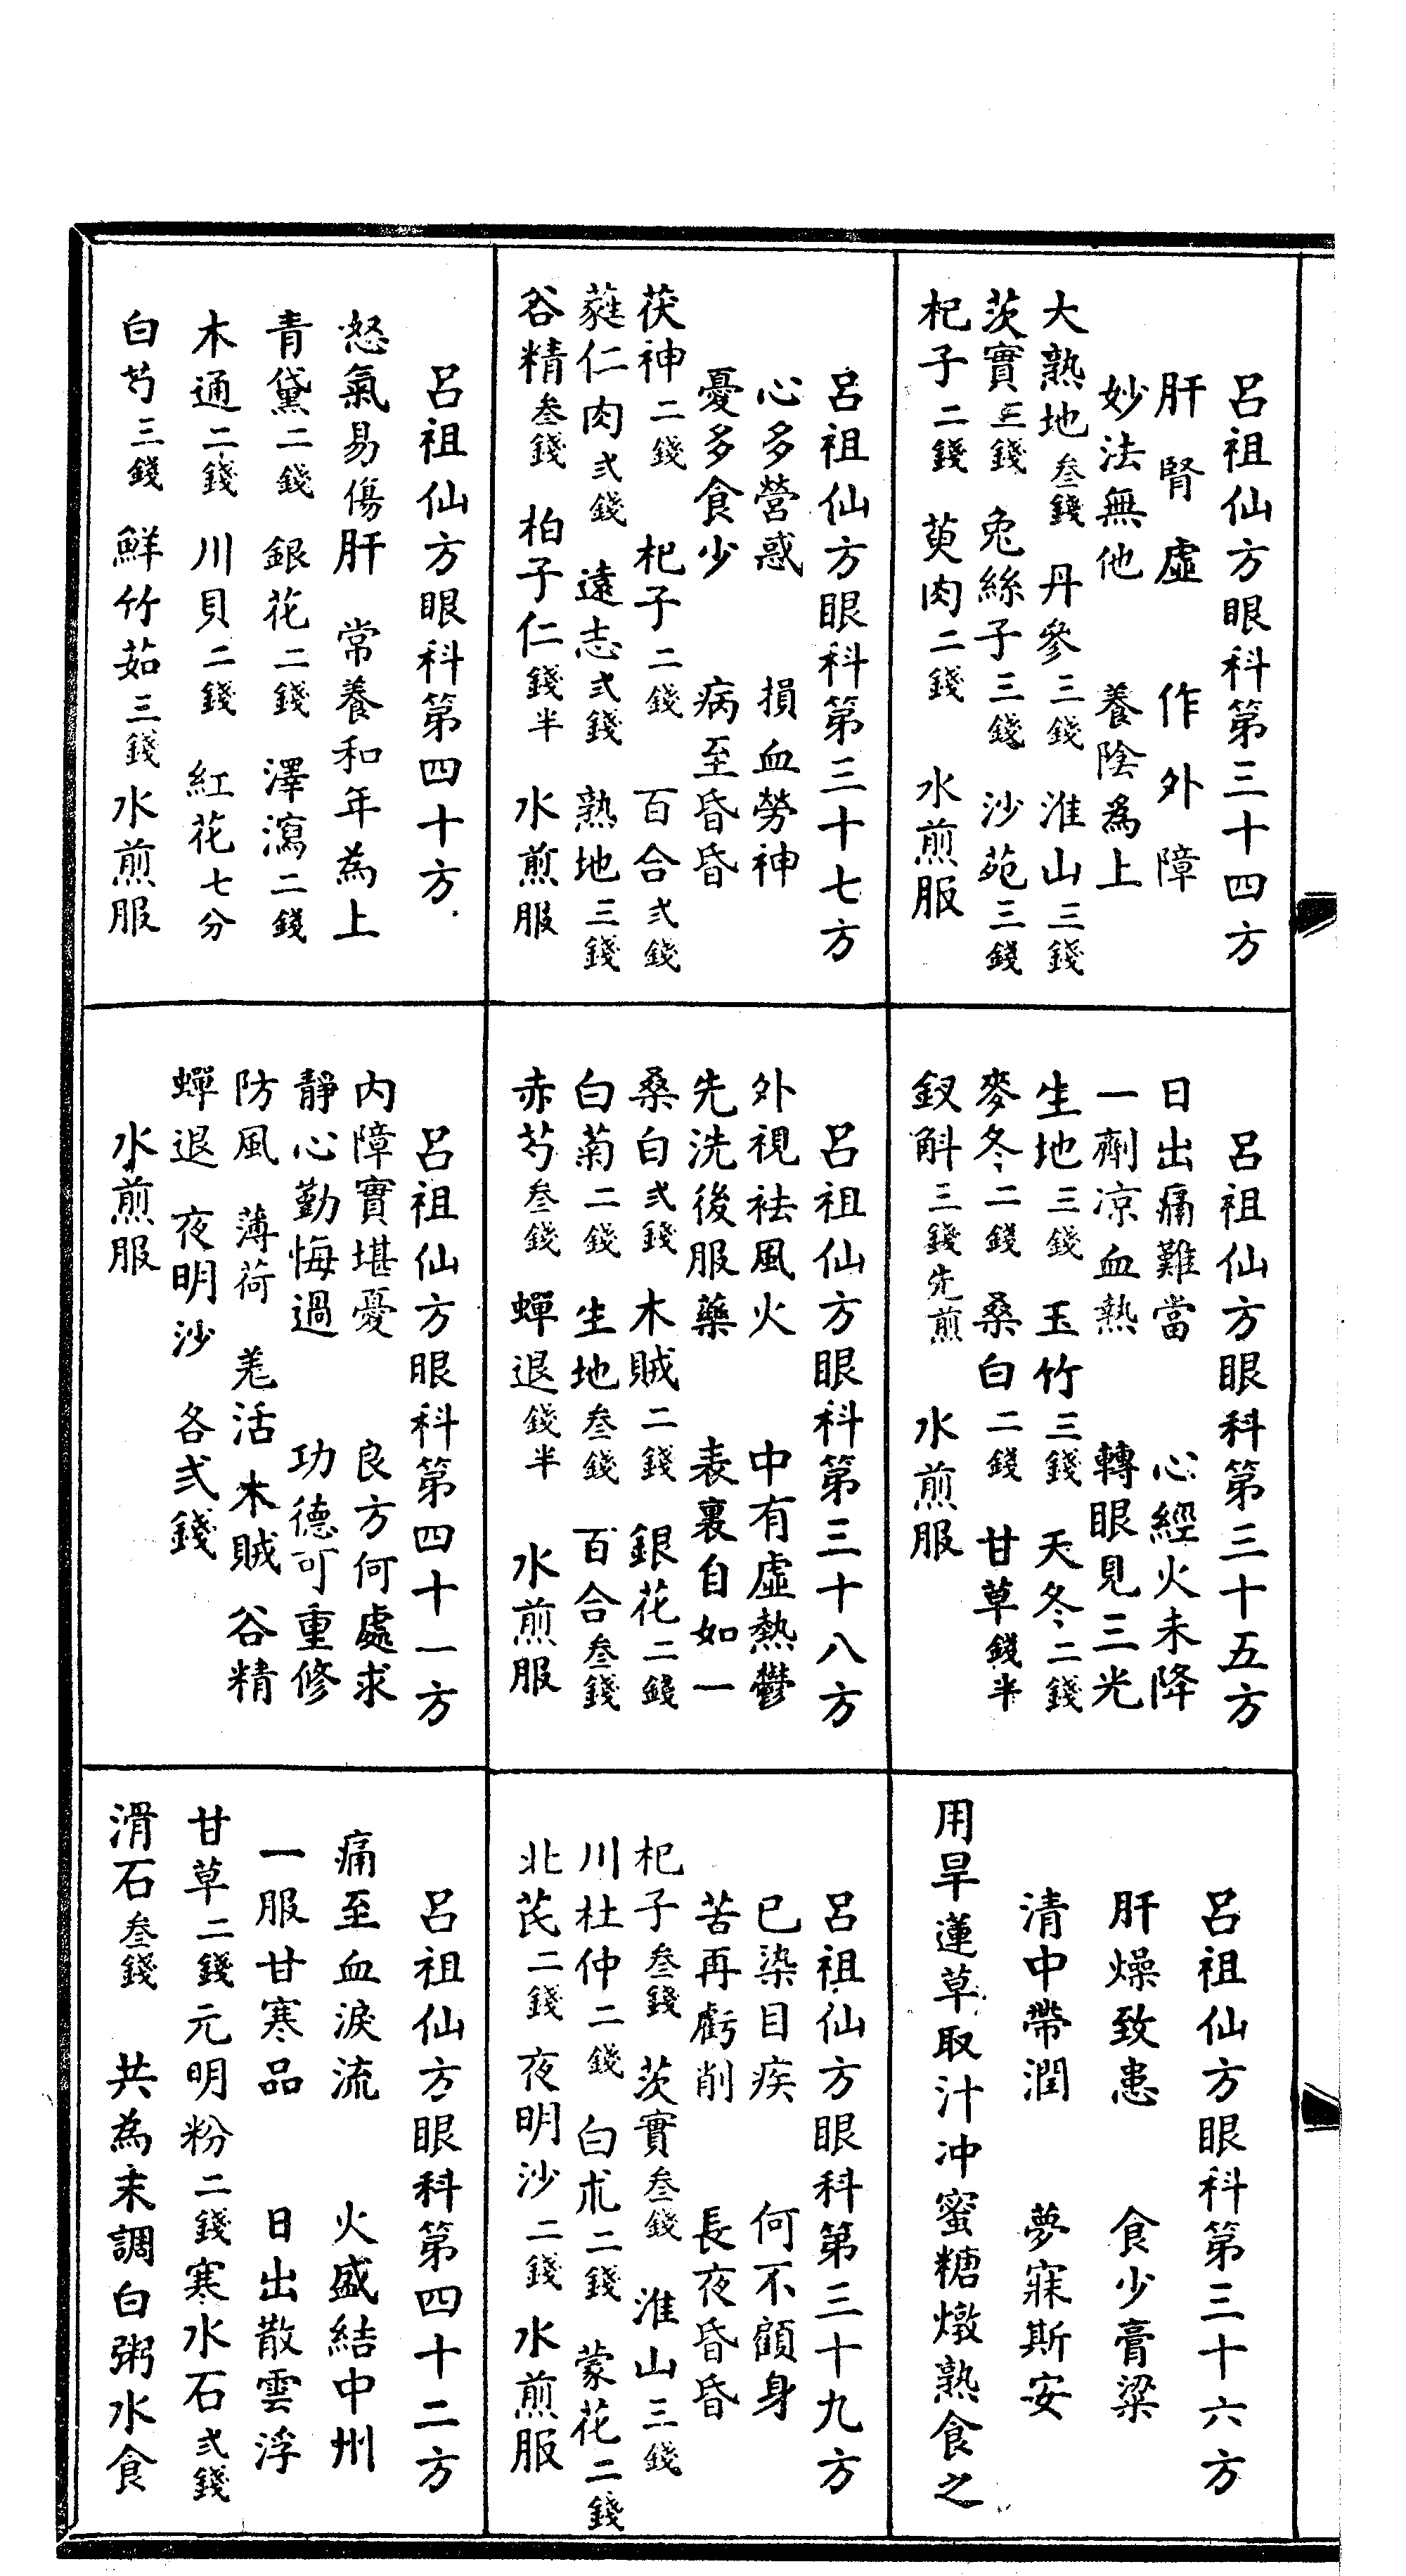 呂祖仙方眼科第三十四方
肝腎虛　作外障
妙法無他　養陰為上
大熟地叁錢　丹參三錢　淮山三錢
茨實三錢　兔絲子三錢　沙苑三錢
杞子二錢　萸肉二錢　水煎服
呂祖仙方眼科第三十五方
日出痛難當　心經火未降
一劑凉血熱　轉眼見三光
生地三錢　玉竹三錢　天冬二錢
麥冬二錢　桑白二錢　甘草錢半
釵斛三錢先煎　水煎服
呂祖仙方眼科第三十六方
肝燥致患　食少膏粱
清中帶潤　夢寐斯安
用旱蓮草取汁冲蜜糖燉熟食之
呂祖仙方眼科第三十七方
心多營惑　損血勞神
憂多食少　病至昏昏
茯神二錢　杞子二錢　百合弍錢
蕤仁肉弍錢　遠志弍錢　熟地三錢
谷精叁錢　柏子仁錢半　水煎服
呂祖仙方眼科第三十八方
外視祛風火　中有虛熱鬱
先洗後服藥　表裏自如一
桑白弍錢　木賊二錢　銀花二錢
白菊二錢　生地叁錢　百合叁錢
赤芍叁錢　蟬退錢半　水煎服
呂祖仙方眼科第三十九方
已染目疾　何不顧身
苦再虧削　長夜昏昏
杞子叁錢　茨實叁錢　淮山三錢
川杜仲二錢　白朮二錢　蒙花二錢
北芪二錢　夜明沙二錢　水煎服
呂祖仙方眼科第四十方
怒氣易傷肝　常養和年為上
青黛二錢　銀花二錢　澤瀉二錢
木通二錢　川貝二錢　紅花七分
白芍三錢　鮮竹茹三錢　水煎服
呂祖仙方眼科第四十一方
內障實堪憂　良方何處求
靜心勤悔過　功德可重修
防風　薄荷　羌活　木賊　谷精
蟬退　夜明沙　各弍錢
水煎服
呂祖仙方眼科第四十二方
痛至血淚流　火盛結中州
一服甘寒品　日出散雲浮
甘草二錢　元明粉二錢　寒水石弍錢
滑石叁錢　共為末調白粥水食